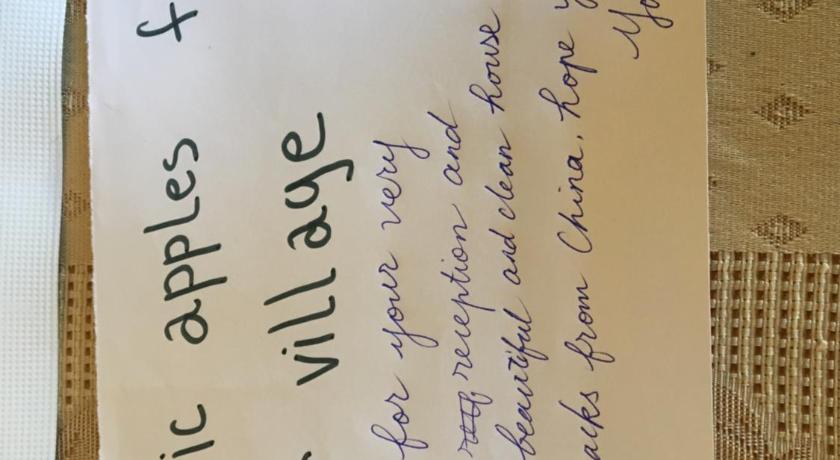 ic apples f
village
for your very
reception and
beautiful and clean house
acks from China, hope y
Yo